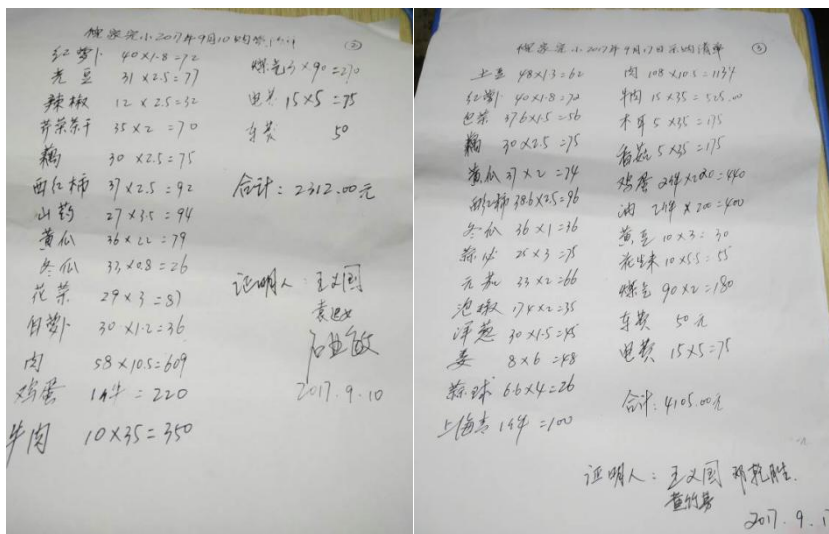 2017年9月10购
②
红萝卜 40×1.8=72
31×2.5=77
辣椒 12×2.5=32
芥菜茶干 35×2=70
藕 30×2.5=75
西红柿 37×2.5=92
山药 27×3.5=94
黄瓜 36×2.2=79
冬瓜 33×0.8=26
花菜 29×3=87
白萝卜 30×1.2=36
肉 58×10.5=609
鸡蛋 1件=220
牛肉 10×35=350
煤气3×90=270
电费 15×5=75
车费 50
合计:2312.00元
证明人:王义国
2017.9.10
小2017年9月17日采购清单
③
土豆 48×1.3=62
红萝卜 40×1.8=72
包菜 37.6×1.5=56
藕 30×2.5=75
黄瓜 37×2=74
西红柿 38.6×2.5=96
冬瓜 36×1=36
25×3=75
33×2=66
泡椒 17.4×2=35
洋葱 30×1.5=45
姜 8×6=48
蒜球 6.6×4=26
上海青 1件=100
肉 108×10.5=1134
牛肉 15×35=525.00
木耳 5×35=175
香菇 5×35=175
鸡蛋 2件×220=440
油 2件×200=400
黄豆 10×3=30
花生米 10×5.5=55
煤气 90×2=180
车费 50元
电费 15×5=75
合计:4105.00元
证明人:王义国
2017.9.1